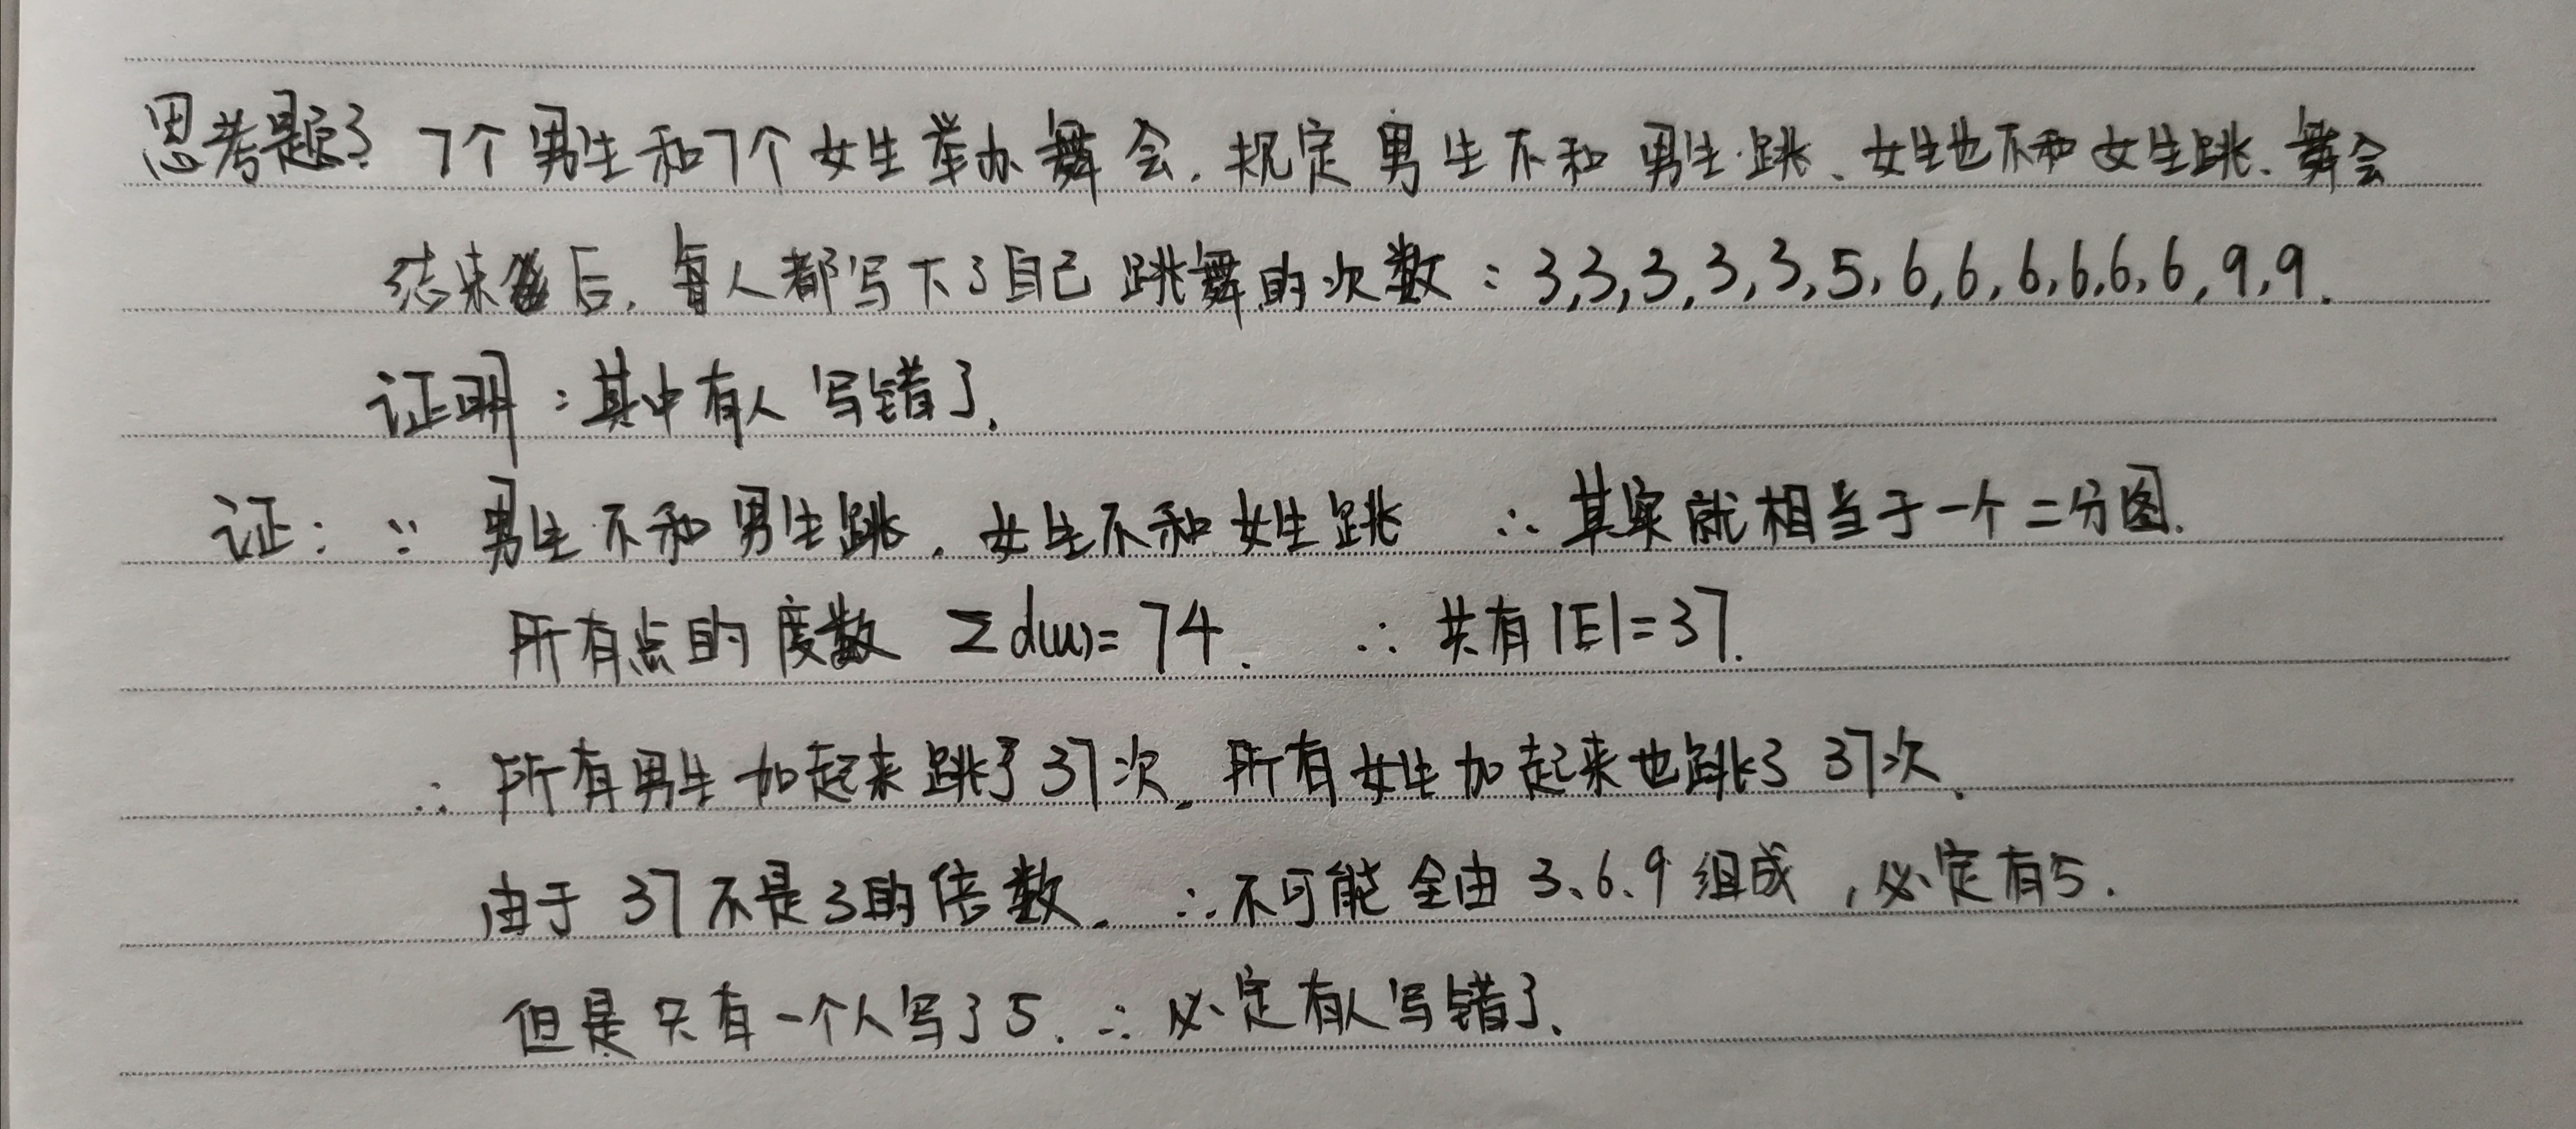 思考题3 7个男生和7个女生举办舞会.规定男生不和男生跳、女生也不和女生跳.舞会
结束后,每人都写下了自己跳舞的次数:3,3,3,3,3,5,6,6,6,6,6,6,9,9.
证明:其中有人写错了.
证:∵男生不和男生跳.女生不和女生跳 ∴其实就相当于一个二分图.
所有点的度数 Σd(u)=74. ∴共有|E|=37.
∴所有男生加起来跳了37次.所有女生加起来也跳了37次.
由于37不是3的倍数.∴不可能全由3、6、9组成,必定有5.
但是只有一个人写了5.∴必定有人写错了.